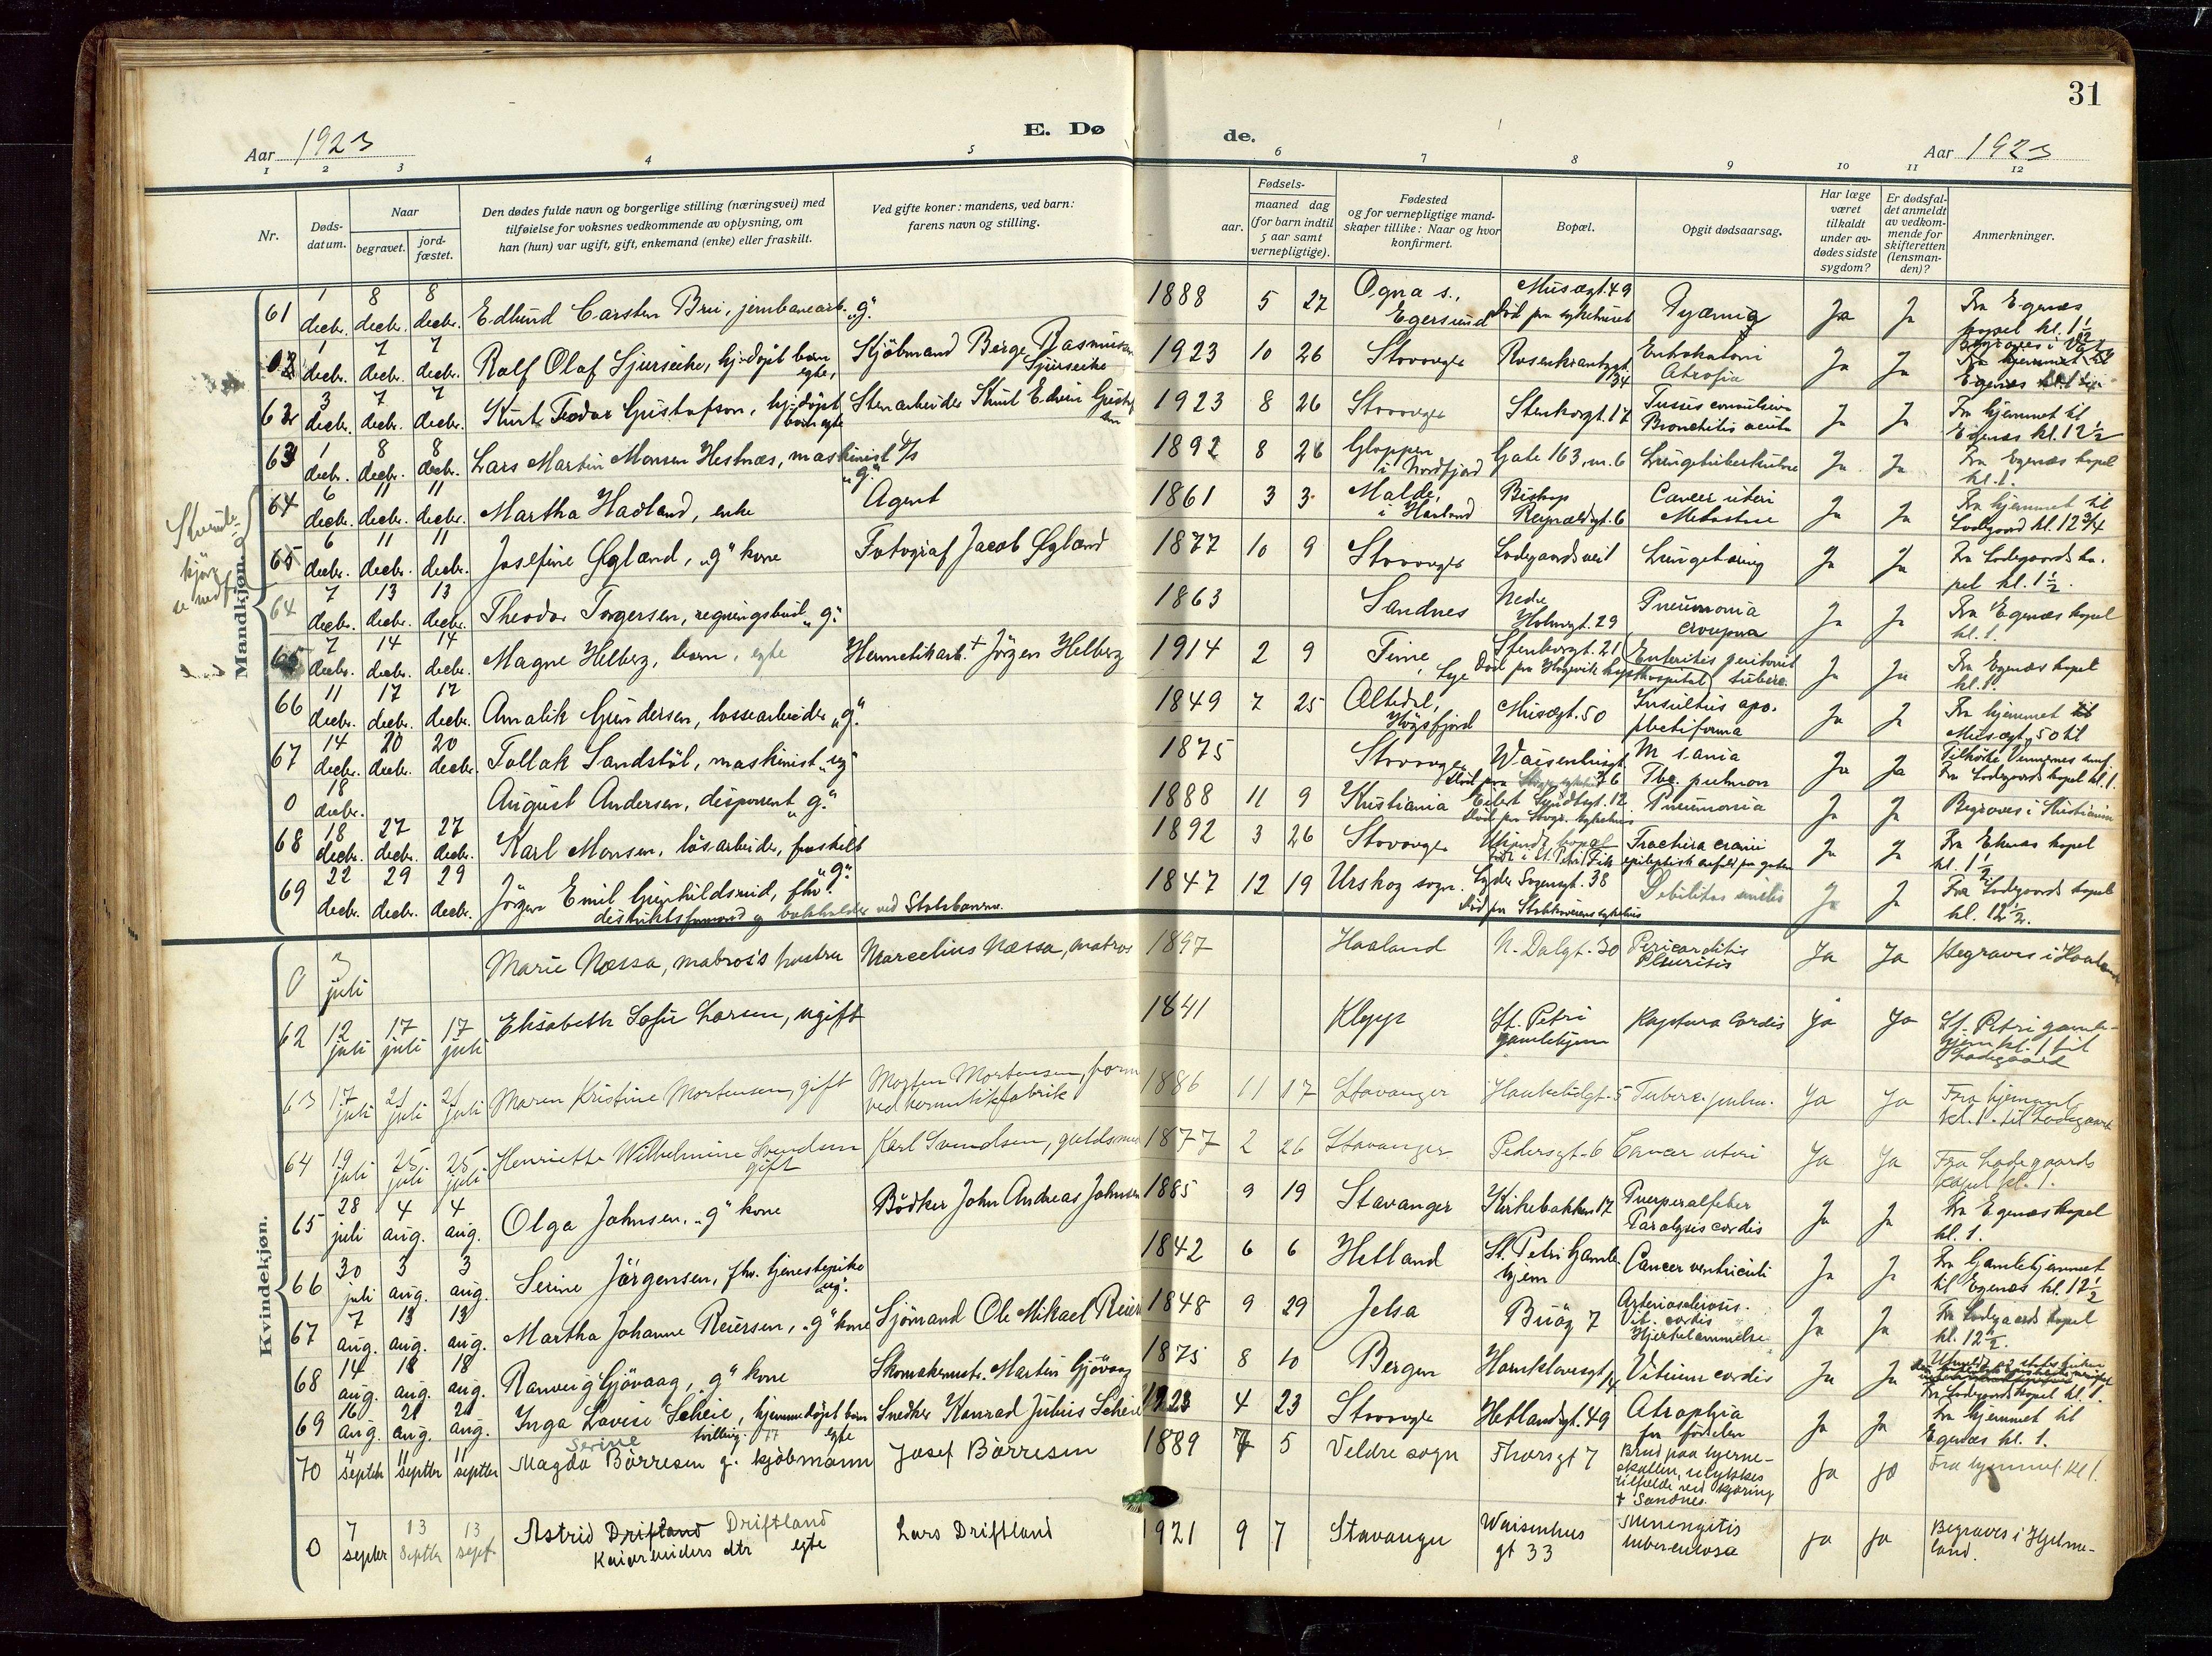 31
E. Dø de.
Aar 1923
Aar 1923
1 2 3 4 5 6 7 8 9 10 11 12
Nr.
Døds-
datum.
Naar
begravet.
jord-
fæstet.
Den dødes fulde navn og borgerlige stilling (næringsvei) med
tilføielse for voksnes vedkommende av oplysning, om
han (hun) var ugift, gift, enkemand (enke) eller fraskilt.
Ved gifte koner: mandens, ved barn:
farens navn og stilling.
Fødsels-
aar.
maaned dag
(for barn indtil
5 aar samt
vernepligtige).
Fødested
og for vernepligtige mand-
skaper tillike: Naar og hvor
konfirmert.
Bopæl.
Opgit dødsaarsag.
Har læge
været
tilkaldt
under av-
dødes sidste
sygdom?
Er dødsfal-
det anmeldt
av vedkom-
mende for
skifteretten
(lensman-
den)?
Anmerkninger.
Mandkjøn.
61 1 decbr. 8 decbr. 8 decbr. Edlund Carsten Bru, jernbanearb. "g." 1888 5 27 Ogna s., Egersund Musægt. 49 Død paa sykehuset Pyæmia Ja Ja Fra Egenæs kapel kl. 1 1/2
1 decbr. 7 decbr. 7 decbr. Ralf Olaf Sjurseike, hj.døpt barn egte, Kjøbmand Berge Rasmussen Sjurseike 1923 10 26 Stavanger Rosenkrantzgt. 34 Enterokatarr Atrofia Ja Ja
62 3 decbr. 7 decbr. 7 decbr. Kurt Teodor Gustafson, hj.døpt barn egte Stenarbeider Knut Edvin Gustafson 1923 8 26 Stavanger Stenkargt. 17 Tussis convulsiva Bronchitis acuta Ja Ja Fra hjemmet til Egenæs kl. 12 1/2
63 1 decbr. 8 decbr. 8 decbr. Lars Martin Monsen Hestnæs, maskinist D/S "g." 1892 8 26 Gloppen i Nordfjord Gate 163, nr. 6 Lungetuberkulose Ja Ja Fra Egenæs kapel kl. 1.
64 6 decbr. 11 decbr. 11 decbr. Martha Hadland, enke Agent 1861 3 3 Malde, i Haaland Biskop Reynaldsgt. 6 Cancer uteri Metastase Ja Ja Fra hjemmet til Lodegaard kl. 12 3/4
65 6 decbr. 11 decbr. 11 decbr. Josefine Øgland, "g" kone Fotograf Jacob Øgland 1877 10 9 Stavanger Lodegaardsveil Lungetæring Ja Ja Fra Lodegaards kapel kl. 1 1/2.
64 7 decbr. 13 decbr. 13 decbr. Theodor Torgersen, regningsbud "g." 1863 Sandnes Nedre Holmegt. 29 Pneumonia crouposa Ja Ja Fra Egenæs kapel kl. 1.
65 7 decbr. 14 decbr. 14 decbr. Magne Helberg, barn, egte Hermetikarb. + Jörgen Helberg 1914 2 9 Time, Lye Stenkargt. 21 Enteritis peritonit tuberc. Ja Ja Fra Egenæs kapel kl. 1.
66 11 decbr. 17 decbr. 17 decbr. Amalik Gundersen, lossearbeider "g." 1849 7 25 Høgsfjord Musægt. 50 Insultus apoplectiforma Ja Ja Fra hjemmet Musægt. 50 til
67 14 decbr. 20 decbr. 20 decbr. Tollak Sandstöl, maskinist "ug" 1875 Stavanger Waisenhusgt. 76 Tbc. pulmon Ja Ja Fra Lodegaards kapel kl. 1.
0 18 decbr. August Andersen, disponent "g." 1888 11 9 Kristiania Eilert Sundtsgt. 12 Død paa Stvgr. sykehus Pneumonia Ja Ja Begraves i Kristiania
68 18 decbr. 27 decbr. 27 decbr. Karl Monsen, løsarbeider, fraskilt 1892 3 26 Stavanger Ukjendt bopæl Fractura cranii epileptisk anfald paa gaten Ja Ja Fra Egenæs kapel kl. 1 1/2
69 22 decbr. 29 decbr. 29 decbr. Jörgen Emil Gunhildsrud, fhv. "g." ved Statsbanerne. 1847 12 19 Urskog sogn. Lyder Sagensgt. 38 Debilitas senilis Ja Ja Fra Lodegaards kapel kl. 12 1/2.
Kvindekjøn.
0 3 juli Marie Næssa, matros's hustru Marcelius Næssa, matros 1897 Haaland N. Dalgt. 30 Pericarditis Pleuritis Ja Ja Begraves i Haaland
62 12 juli 17 juli 17 juli Elisabeth Sofie Larsen, ugift 1841 Klepp St. Petri gamlehjem Ruptura Cordis Ja Ja St. Petri gamlehjem kl. 1 til Lodegaard
63 17 juli 21 juli 21 juli Maren Kristine Mortensen, gift Morten Mortensen, form. ved hermetikfabrik 1886 11 17 Stavanger Haukelidgt. 5 Tuberc. pulm. Ja Ja Fra hjemmet kl. 1. til Lodegaard
64 19 juli 25 juli 25 juli Henriette Wilhelmine Svendsen gift Karl Svendsen, guldsmed 1877 2 26 Stavanger Pedersgt. 6 Cancer uteri Ja Ja Fra Lodegaards kapel kl. 1.
65 28 juli 4 aug. 4 aug. Olga Johnsen, "g" kone Bödker John Andreas Johnsen 1885 9 19 Stavanger Kirkebakken 17 Puerperalfeber Paralysis cordis Ja Ja Fra Egenæs kapel kl. 1.
66 30 juli 3 aug. 3 aug. Serine Jörgensen, fhv. tjenestepike "ug." 1842 6 6 Hetland St. Petri Gamlehjem Cancer ventriculi Ja Ja Fra Gamlehjemmet til Egenæs kl. 12 1/2
67 7 aug. 13 aug. 13 aug. Martha Johanne Reiersen, "g" kone Sjömand Ole Mikael Reier 1848 9 29 Jelsa Buöy 7 Arteriosclerosis. Vit. cordis Hjertelammelse Ja Ja Fra Lodegaards kapel kl. 12 1/2.
68 14 aug. 18 aug. 18 aug. Ranveig Gjövaag, "g" kone Skomakermstr. Martin Gjövaag 1875 8 10 Bergen Haraldsgt. 14 Vitium cordis Ja Ja Fra Lodegaards kapel kl. 1.
69 16 aug. 21 aug. 21 aug. Inga Lovise Scheie, hjemmedøpt barn tvilling. egte Snedker Konrad Julius Scheie 1923 4 23 Stavanger Hetlandsgt. 49 Atrophia fra födselen Ja Ja Fra hjemmet til Egenæs kl. 1.
70 4 septbr 11 septbr 11 septbr Magda Serine Börresen g. kjöbmann Josef Börresen 1889 7 5 Veldre sogn Thorsgt 7 Brud paa hjerneskallen, ulykkestilfælde ved kjöring Sandnes. ja ja Fra hjemmet kl 1.
0 7 septbr 13 septbr 13 sept. Astrid Driftland Driftland Kaiarbeiders dtr egte Lars Driftland 1921 9 7 Stavanger Waisenhus gt 33 Meningitis tuberculosa ja ja Begraves i Hjelmeland.